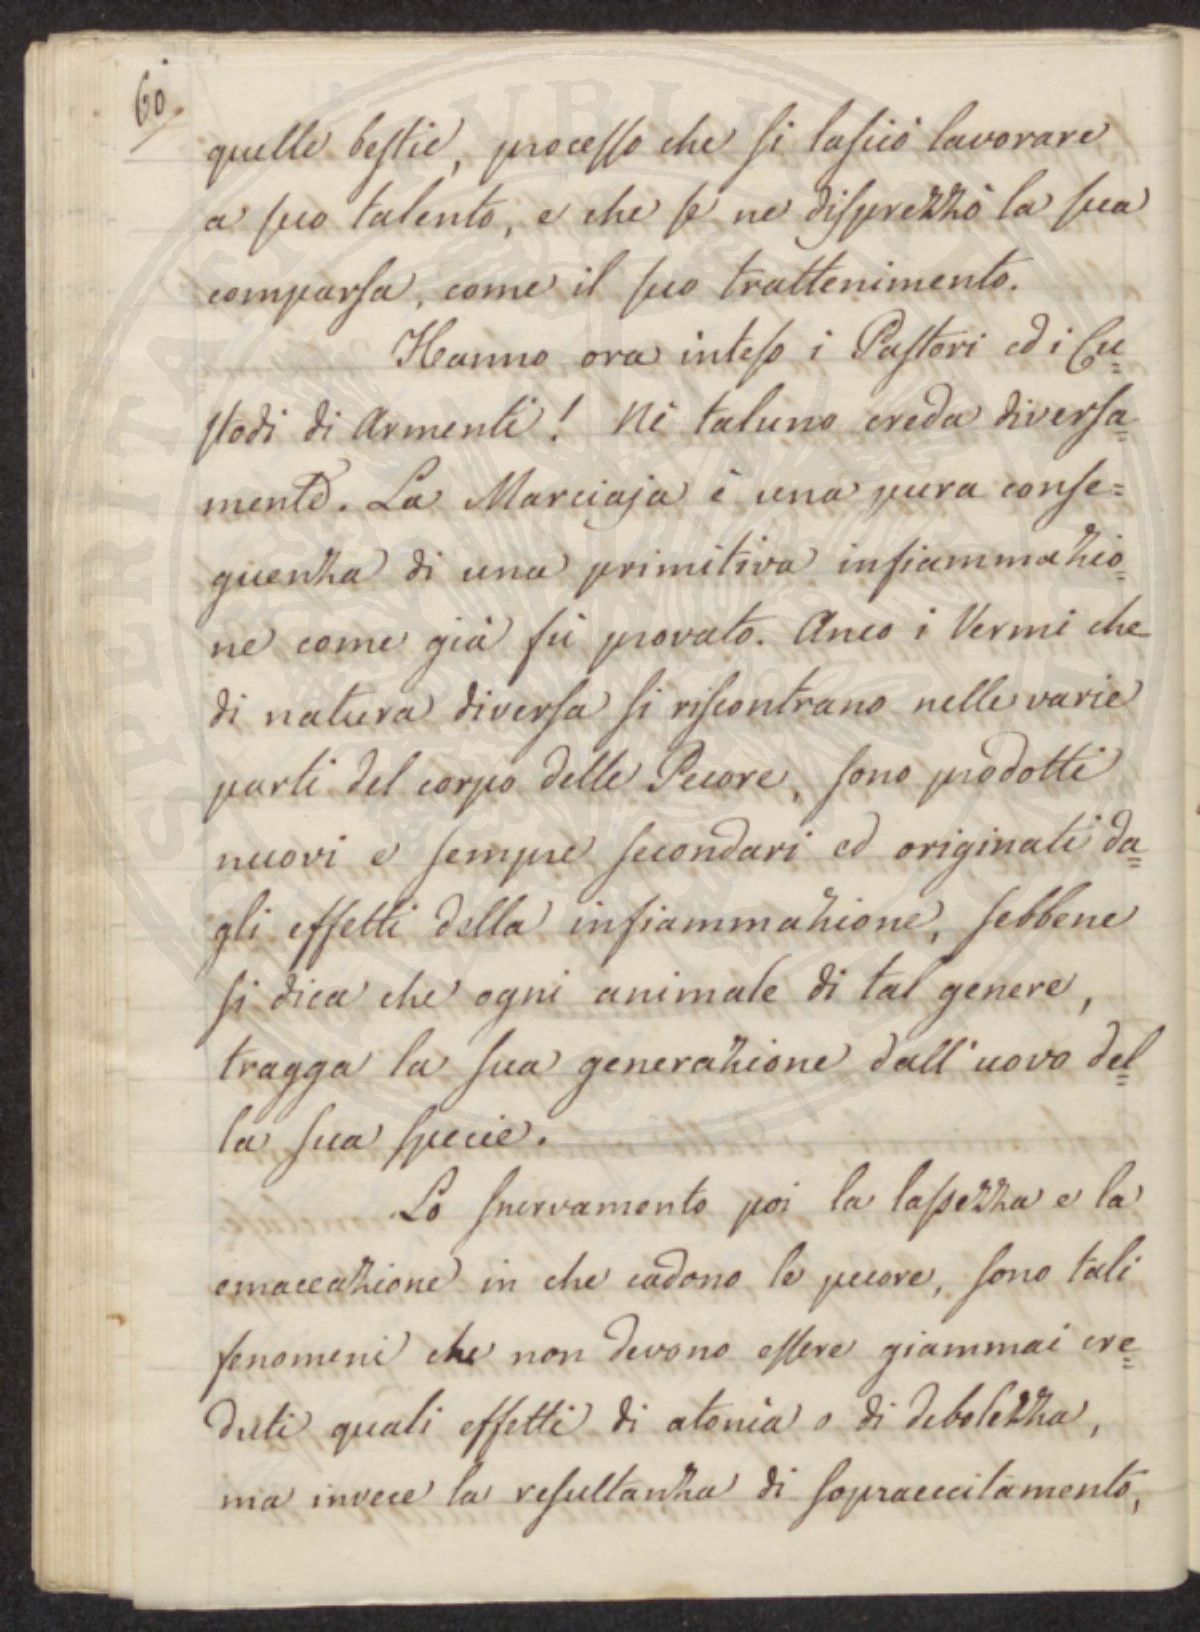 60
quelle bestie, processo che si lasciò lavorare
a suo talento, e che se ne disprezzò la sua
comparsa, come il suo trattenimento.
Hanno ora inteso i Pastori ed i Cu=
stodi di Armenti! Nè taluno creda diversa=
mente. La Marciaja è una pura conse=
guenza di una primitiva infiammazio=
ne come già fù provato. Anco i Vermi che
di natura diversa si riscontrano nelle varie
parti del corpo delle Pecore, sono prodotti
nuovi e sempre secondari ed originati da=
gli effetti della infiammazione, sebbene
si dica che ogni animale di tal genere,
tragga la sua generazione dall'uovo del=
la sua specie.
Lo snervamento poi la lassezza e la
emaceazione in che cadono le pecore, sono tali
fenomeni che non devono essere giammai cre=
duti quali effetti di atonia o di debolezza,
ma invece la resultanza di sopraecitamento,